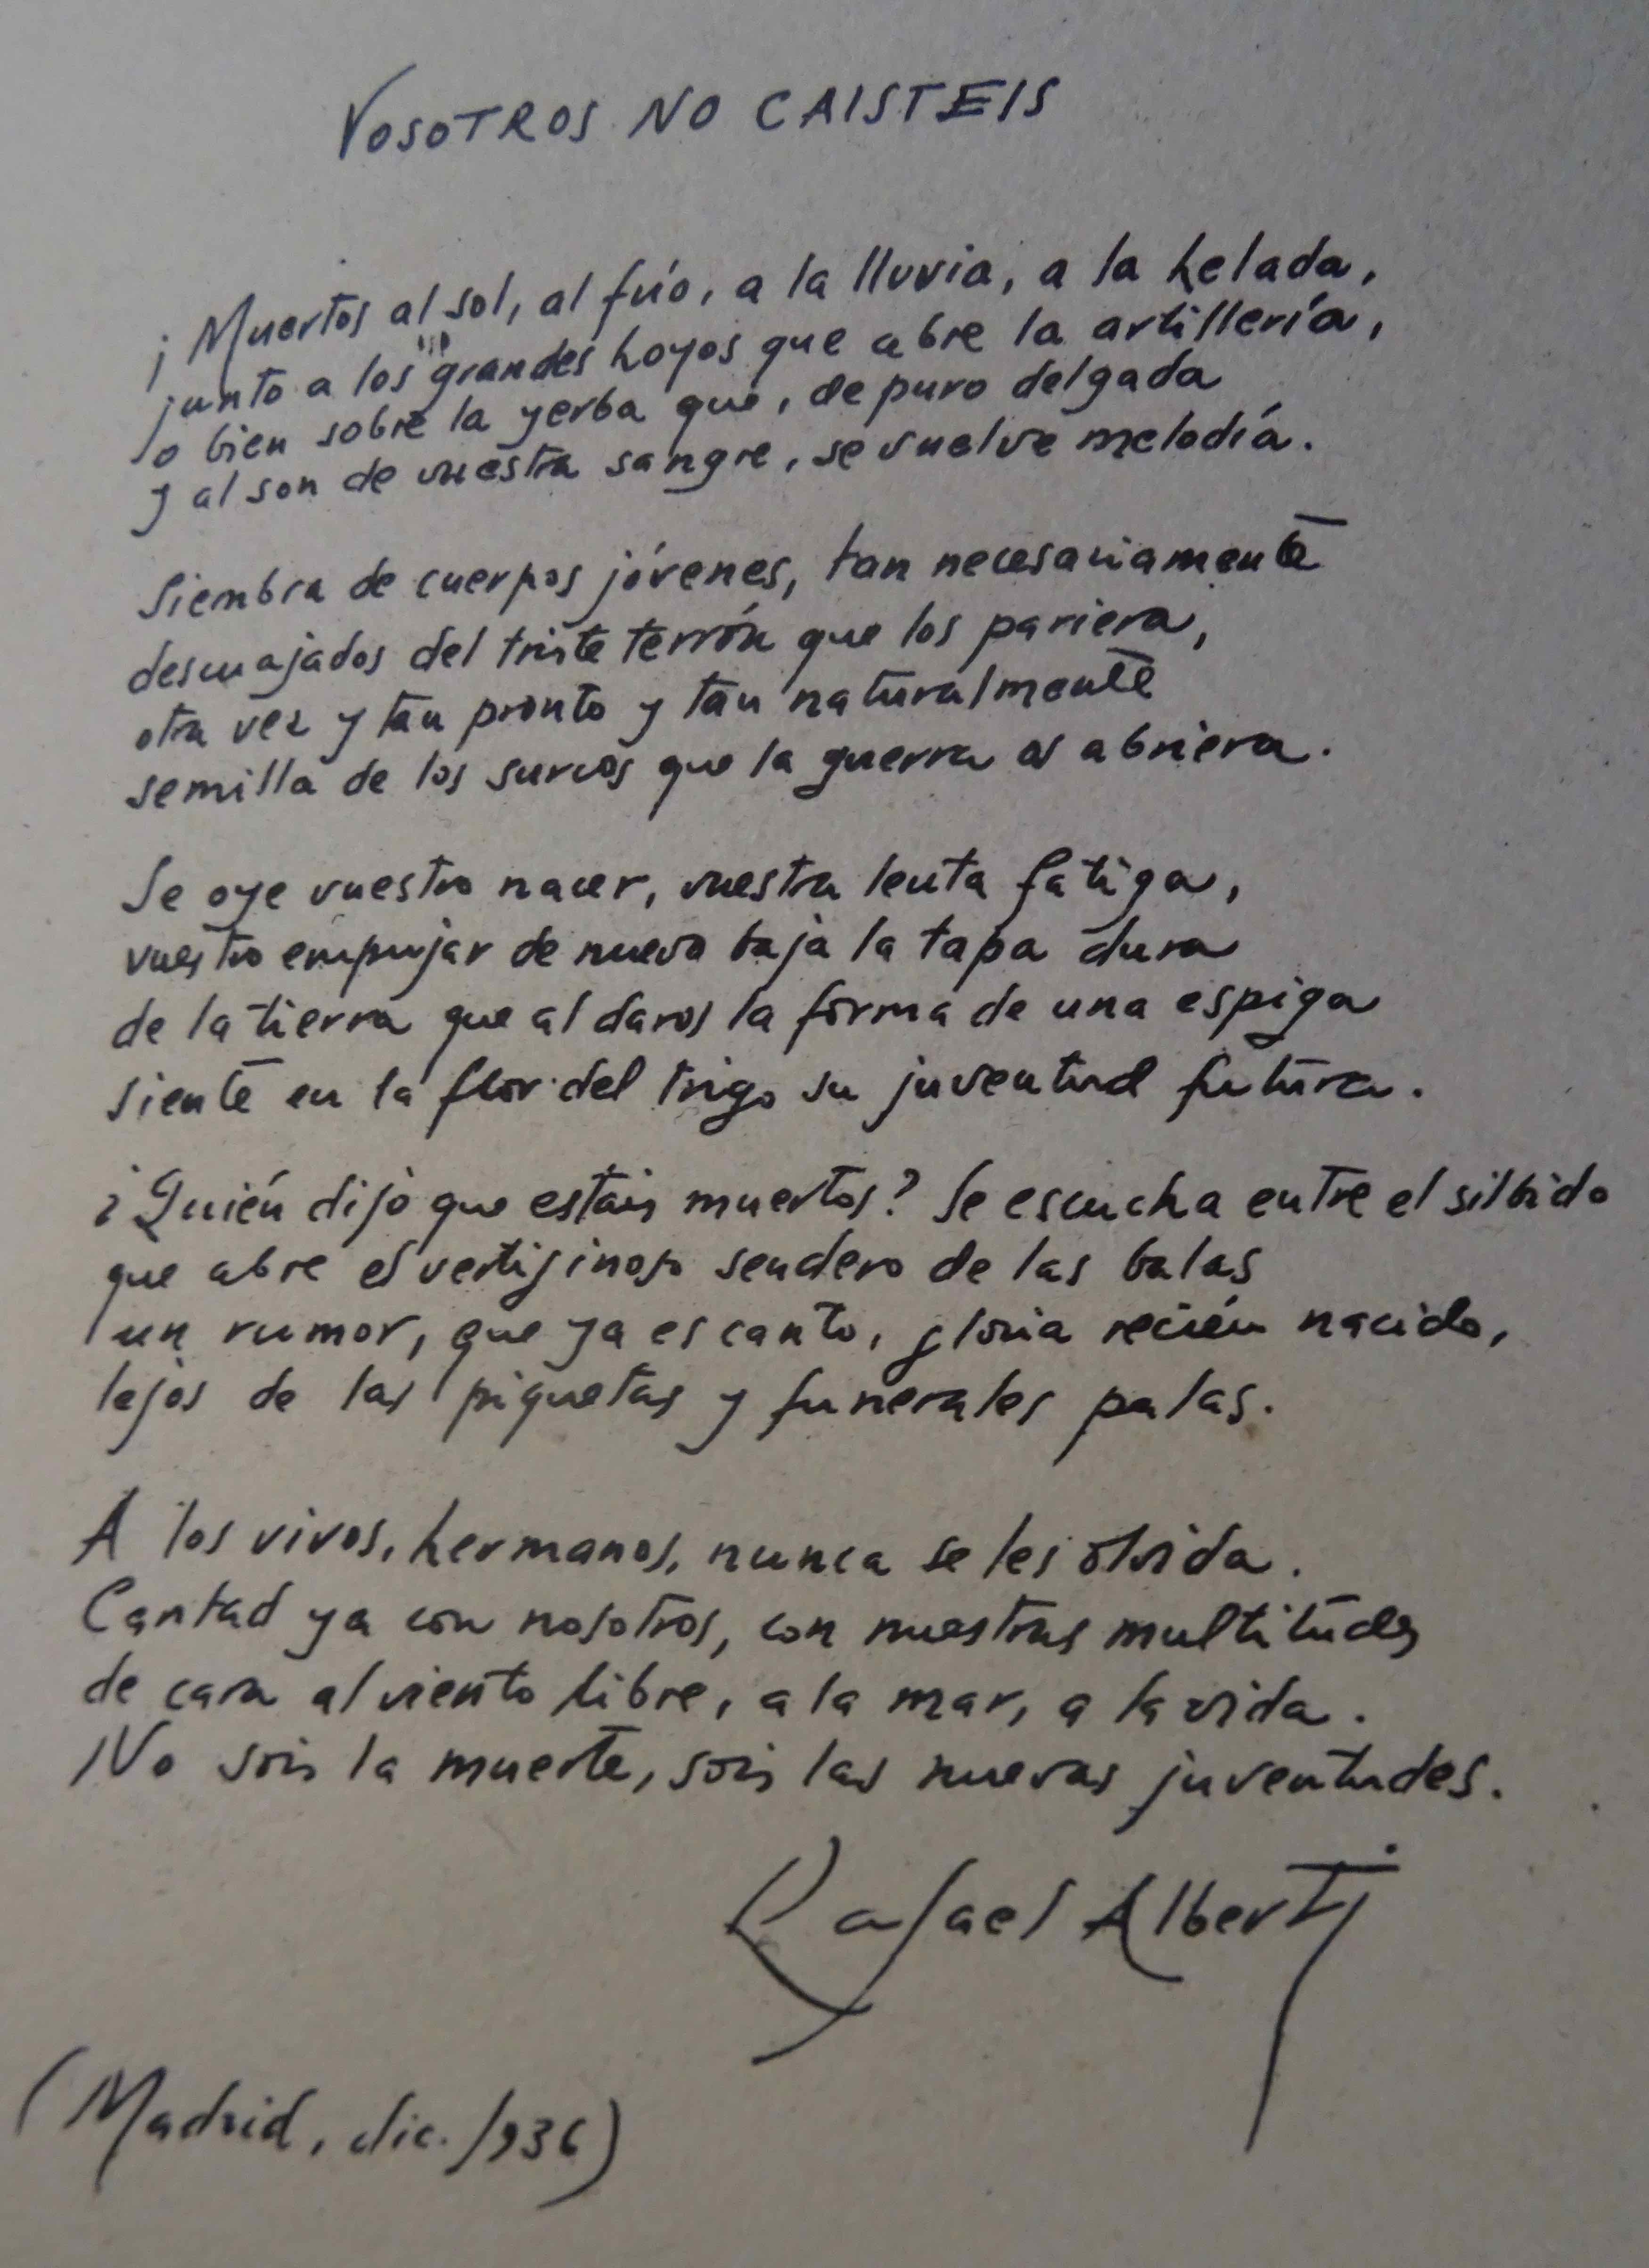 VOSOTROS NO CAISTEIS
¡Muertos al sol, al frío, a la lluvia, a la helada,
junto a los grandes hoyos que abre la artillería,
o bien sobre la yerba que, de puro delgada
y al son de vuestra sangre, se vuelve melodía.
Siembra de cuerpos jóvenes, tan necesariamente
descuajados del triste terrón que los pariera,
otra vez y tan pronto y tan naturalmente
semilla de los surcos que la guerra os abriera.
Se oye vuestro nacer, vuestra lenta fatiga,
vuestro empujar de nuevo baja la tapa dura
de la tierra que al daros la forma de una espiga
siente en la flor del trigo su juventud futura.
¿Quién dijo que estáis muertos? Se escucha entre el silbido
que abre el vertiginoso sendero de las balas
un rumor, que ya es canto, gloria recién nacido,
lejos de las piquetas y funerales palas.
A los vivos, hermanos, nunca se les olvida.
Cantad ya con nosotros, con nuestras multitudes
de cara al viento libre, a la mar, a la vida.
No sois la muerte, sois las nuevas juventudes.
Rafael Alberti
(Madrid, dic. 1936)